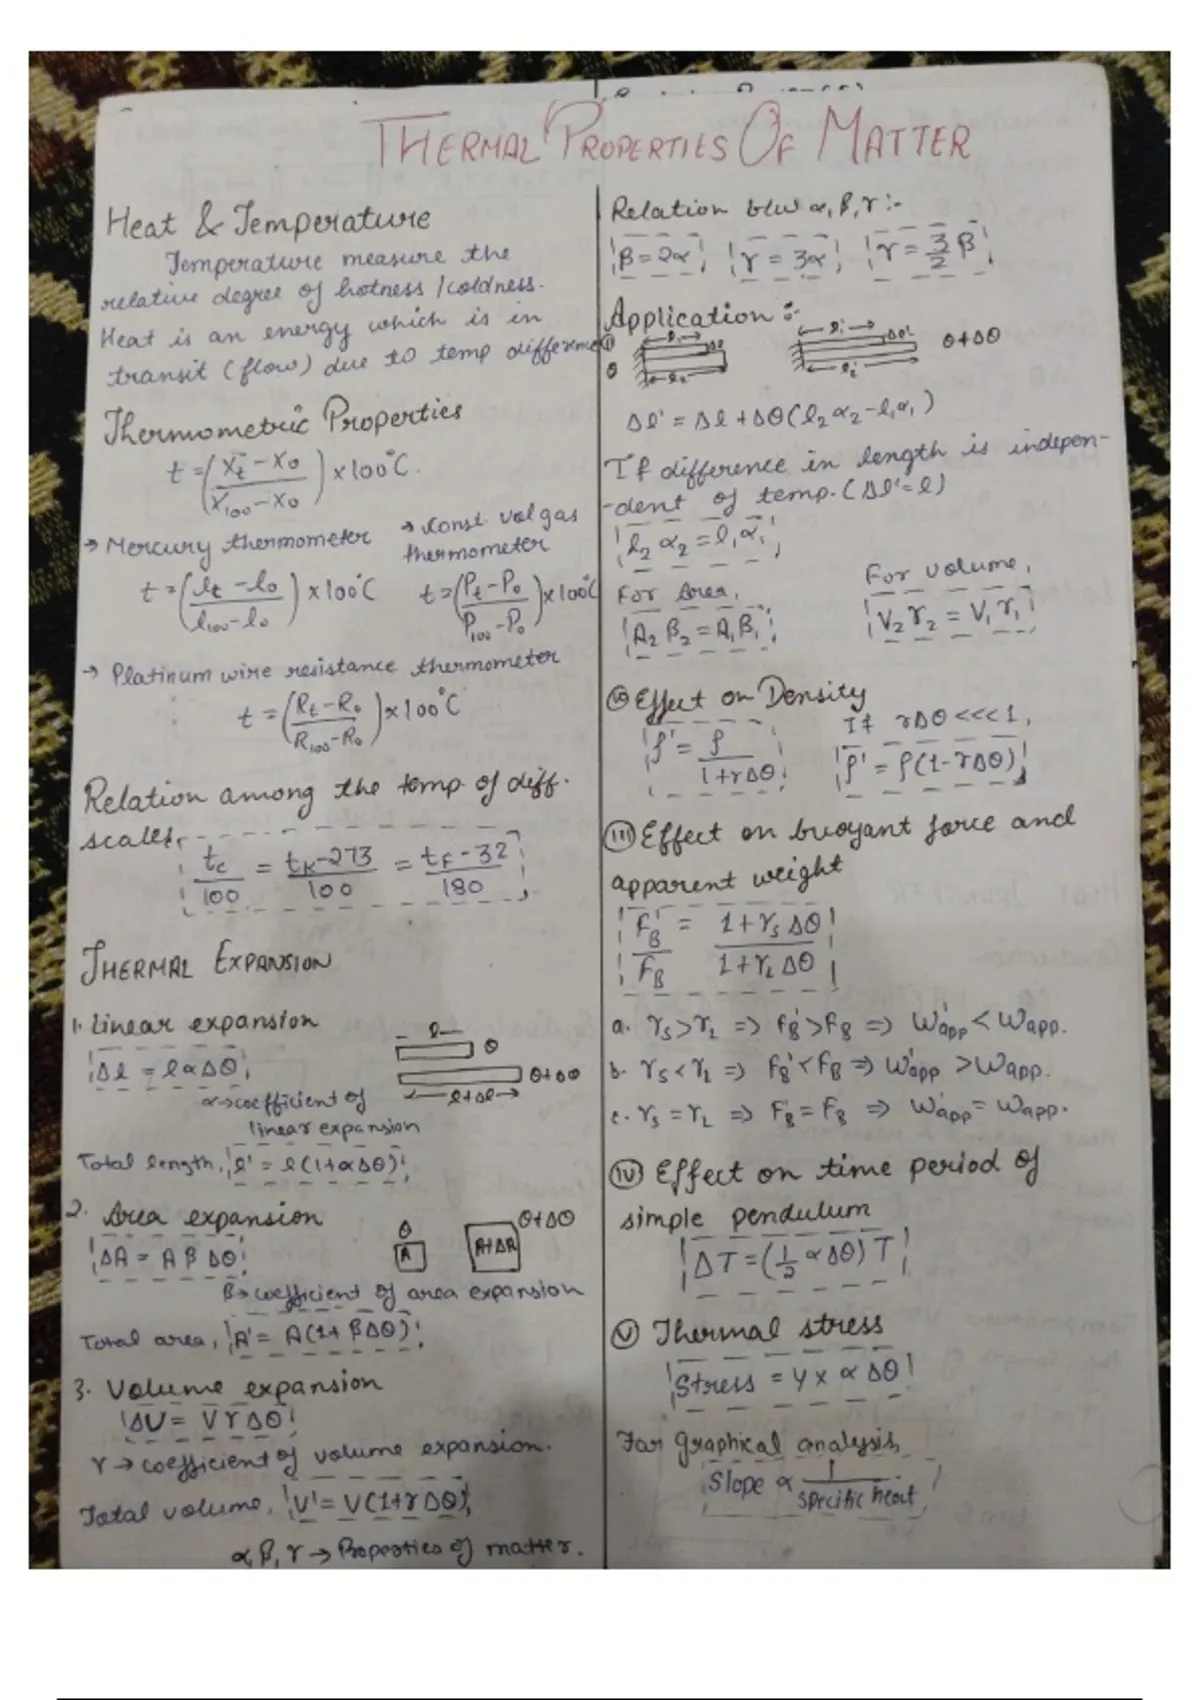 THERMAL PROPERTIES OF MATTER
Heat & Temperature
Temperature measure the
relative degree of hotness / coldness.
Heat is an energy which is in
transit (flow) due to temp difference
Thermometric Properties
t = (Xt - X0 / X100 - X0) × 100°C.
→ Mercury thermometer
t = (lt - l0 / l100 - l0) × 100°C
→ Const. vol gas
thermometer
t = (Pt - P0 / P100 - P0) × 100°C
→ Platinum wire resistance thermometer
t = (Rt - R0 / R100 - R0) × 100°C
Relation among the temp. of diff.
scales
tc / 100 = tK - 273 / 100 = tF - 32 / 180
THERMAL EXPANSION
1. Linear expansion
Δl = lαΔθ
l
θ
θ+Δθ
l+Δl
α→coefficient of
linear expansion
Total length, l' = l(1+αΔθ)
2. Area expansion
ΔA = AβΔθ
θ
A
θ+Δθ
A+ΔA
β→ coefficient of area expansion
Total area, A' = A(1+βΔθ)
3. Volume expansion
ΔV = VγΔθ
γ → coefficient of volume expansion.
Total volume, V' = V(1+γΔθ)
α, β, γ → Properties of matter.
Relation b/w α, β, γ :-
β = 2α
γ = 3α
γ = 3/2 β
Application :-
(i)
θ
l1
Δl
l2
l1'
Δl'
l2'
θ+Δθ
Δl' = Δl + Δθ(l2α2 - l1α1)
If difference in length is indepen-
-dent of temp. (Δl' = l)
l2α2 = l1α1
For Area,
A2β2 = A1β1
For volume,
V2γ2 = V1γ1
(ii) Effect on Density
ρ' = ρ / 1+γΔθ
If γΔθ <<< 1,
ρ' = ρ(1-γΔθ)
(iii) Effect on buoyant force and
apparent weight
F'B / FB = 1+γsΔθ / 1+γLΔθ
a. γs > γL => F'B > FB => W'app < Wapp.
b. γs < γL => F'B < FB => W'app > Wapp.
c. γs = γL => F'B = FB => W'app = Wapp.
(iv) Effect on time period of
simple pendulum
ΔT = (1/2 αΔθ) T
(v) Thermal stress
Stress = Y × αΔθ
For graphical analysis,
Slope ∝ 1 / specific heat